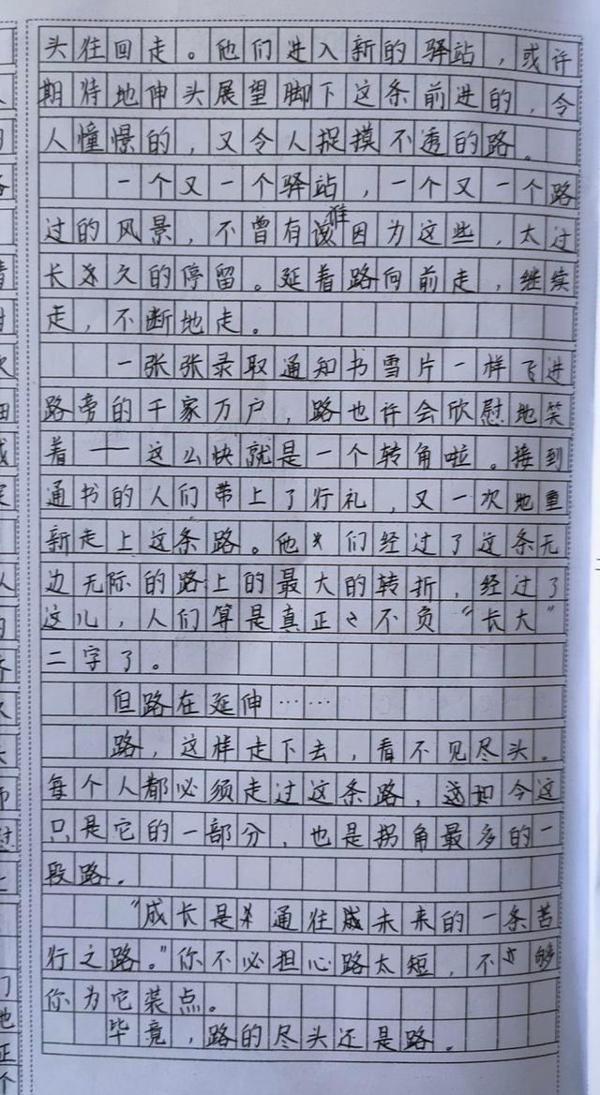 头往回走。他们进入新的驿站，或许
期待地伸头展望脚下这条前进的，令
人憧憬的，又令人捉摸不透的路。
一个又一个驿站，一个又一个路
过的风景，不曾有谁因为这些，太过
长久的停留。延着路向前走，继续
走，不断地走。
一张张录取通知书雪片一样飞进
路旁的千家万户，路也许会欣慰地笑
着——这么快就是一个转角啦。接到
通书的人们带上了行礼，又一次地重
新走上这条路。他们经过了这条无
边无际的路上的最大的转折，经过了
这儿，人们算是真正不负“长大”
二字了。
但路在延伸……
路，这样走下去，看不见尽头。
每个人都必须走过这条路，如今这
只是它的一部分，也是拐角最多的一
段路。
“成长是通往未来的一条苦
行之路。”你不必担心路太短，不够
你为它装点。
毕竟，路的尽头还是路。